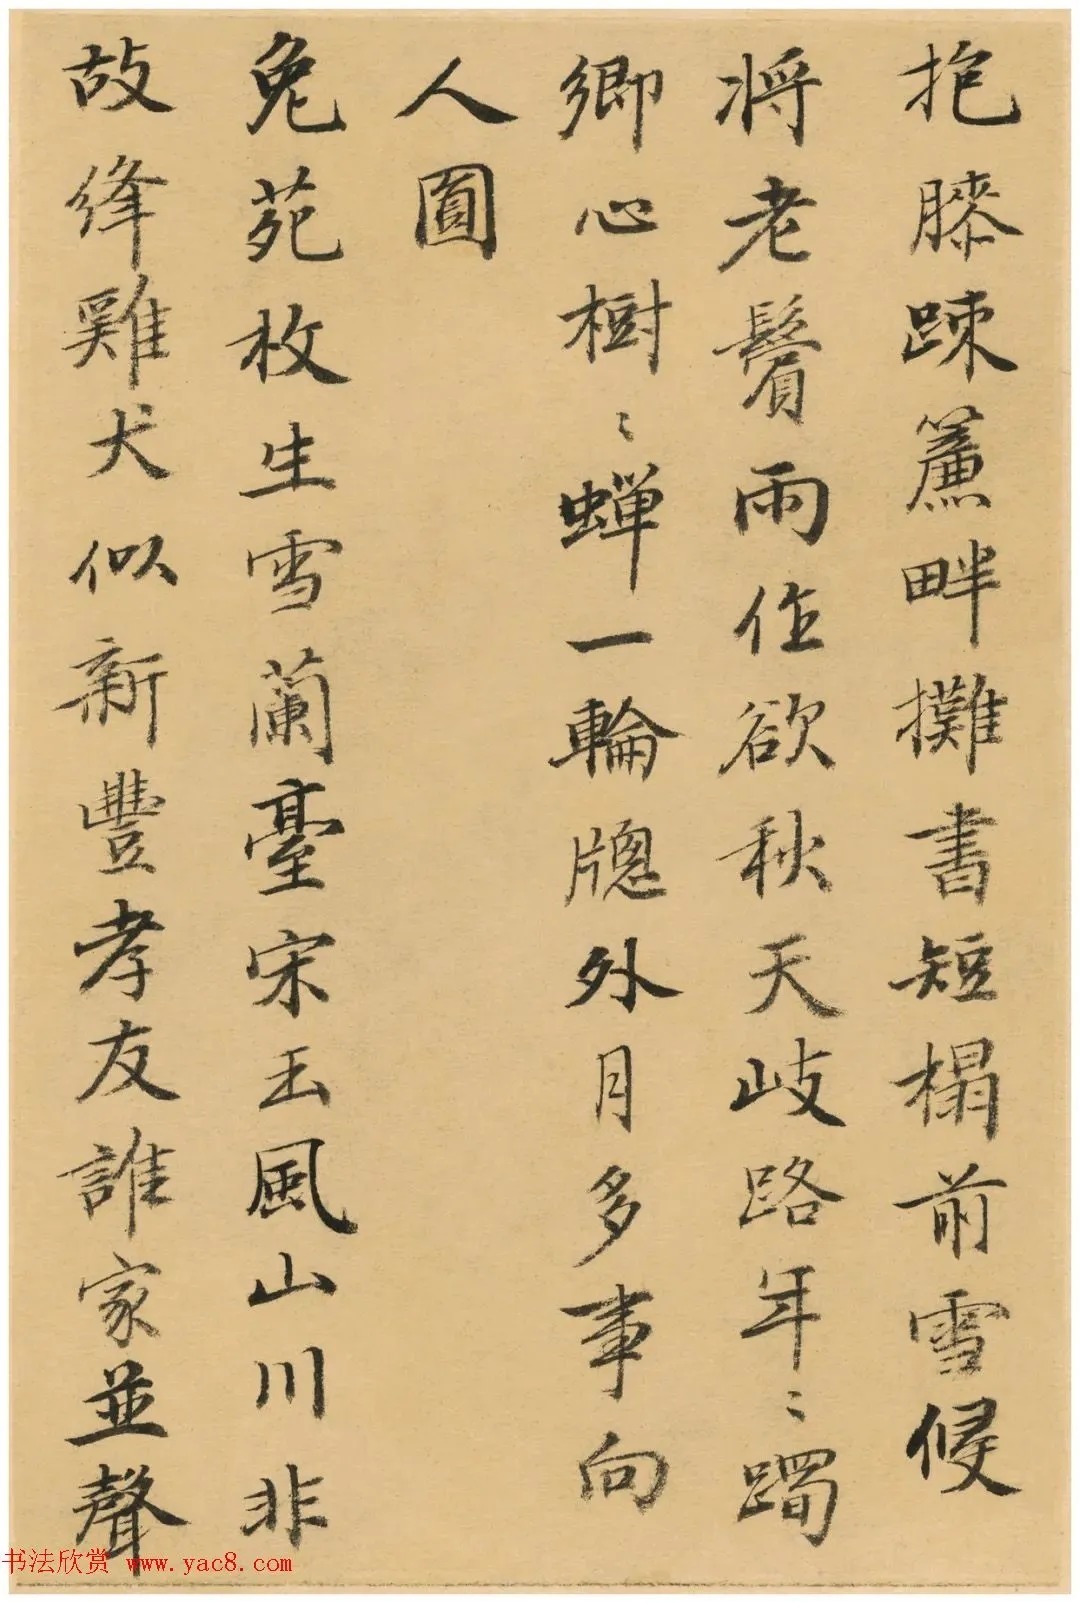 抱膝踈簾畔攤書短榻前雪侵
將老鬢雨作欲秋天岐路年〻躅
鄉心樹〻蟬一輪牕外月多事向
人圓
兔苑枚生雪蘭臺宋玉風山川非
故絳雞犬似新豐孝友誰家並聲
书法欣赏 www.yac8.com